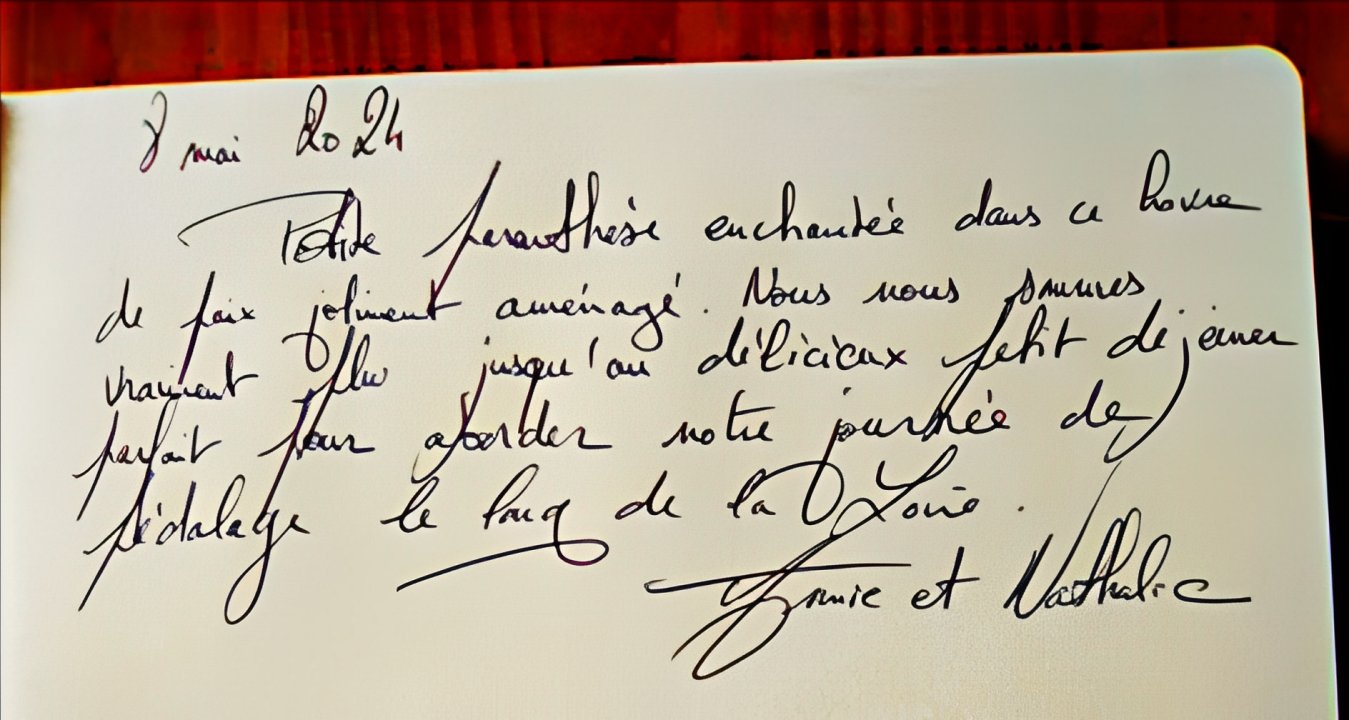 8 mai 2024
Petite parenthèse enchantée dans ce havre
de paix joliment aménagé. Nous nous sommes
vraiment plu jusqu'au délicieux petit déjeuner
parfait pour aborder notre journée de
pédalage le long de la Loire.
et Nathalie